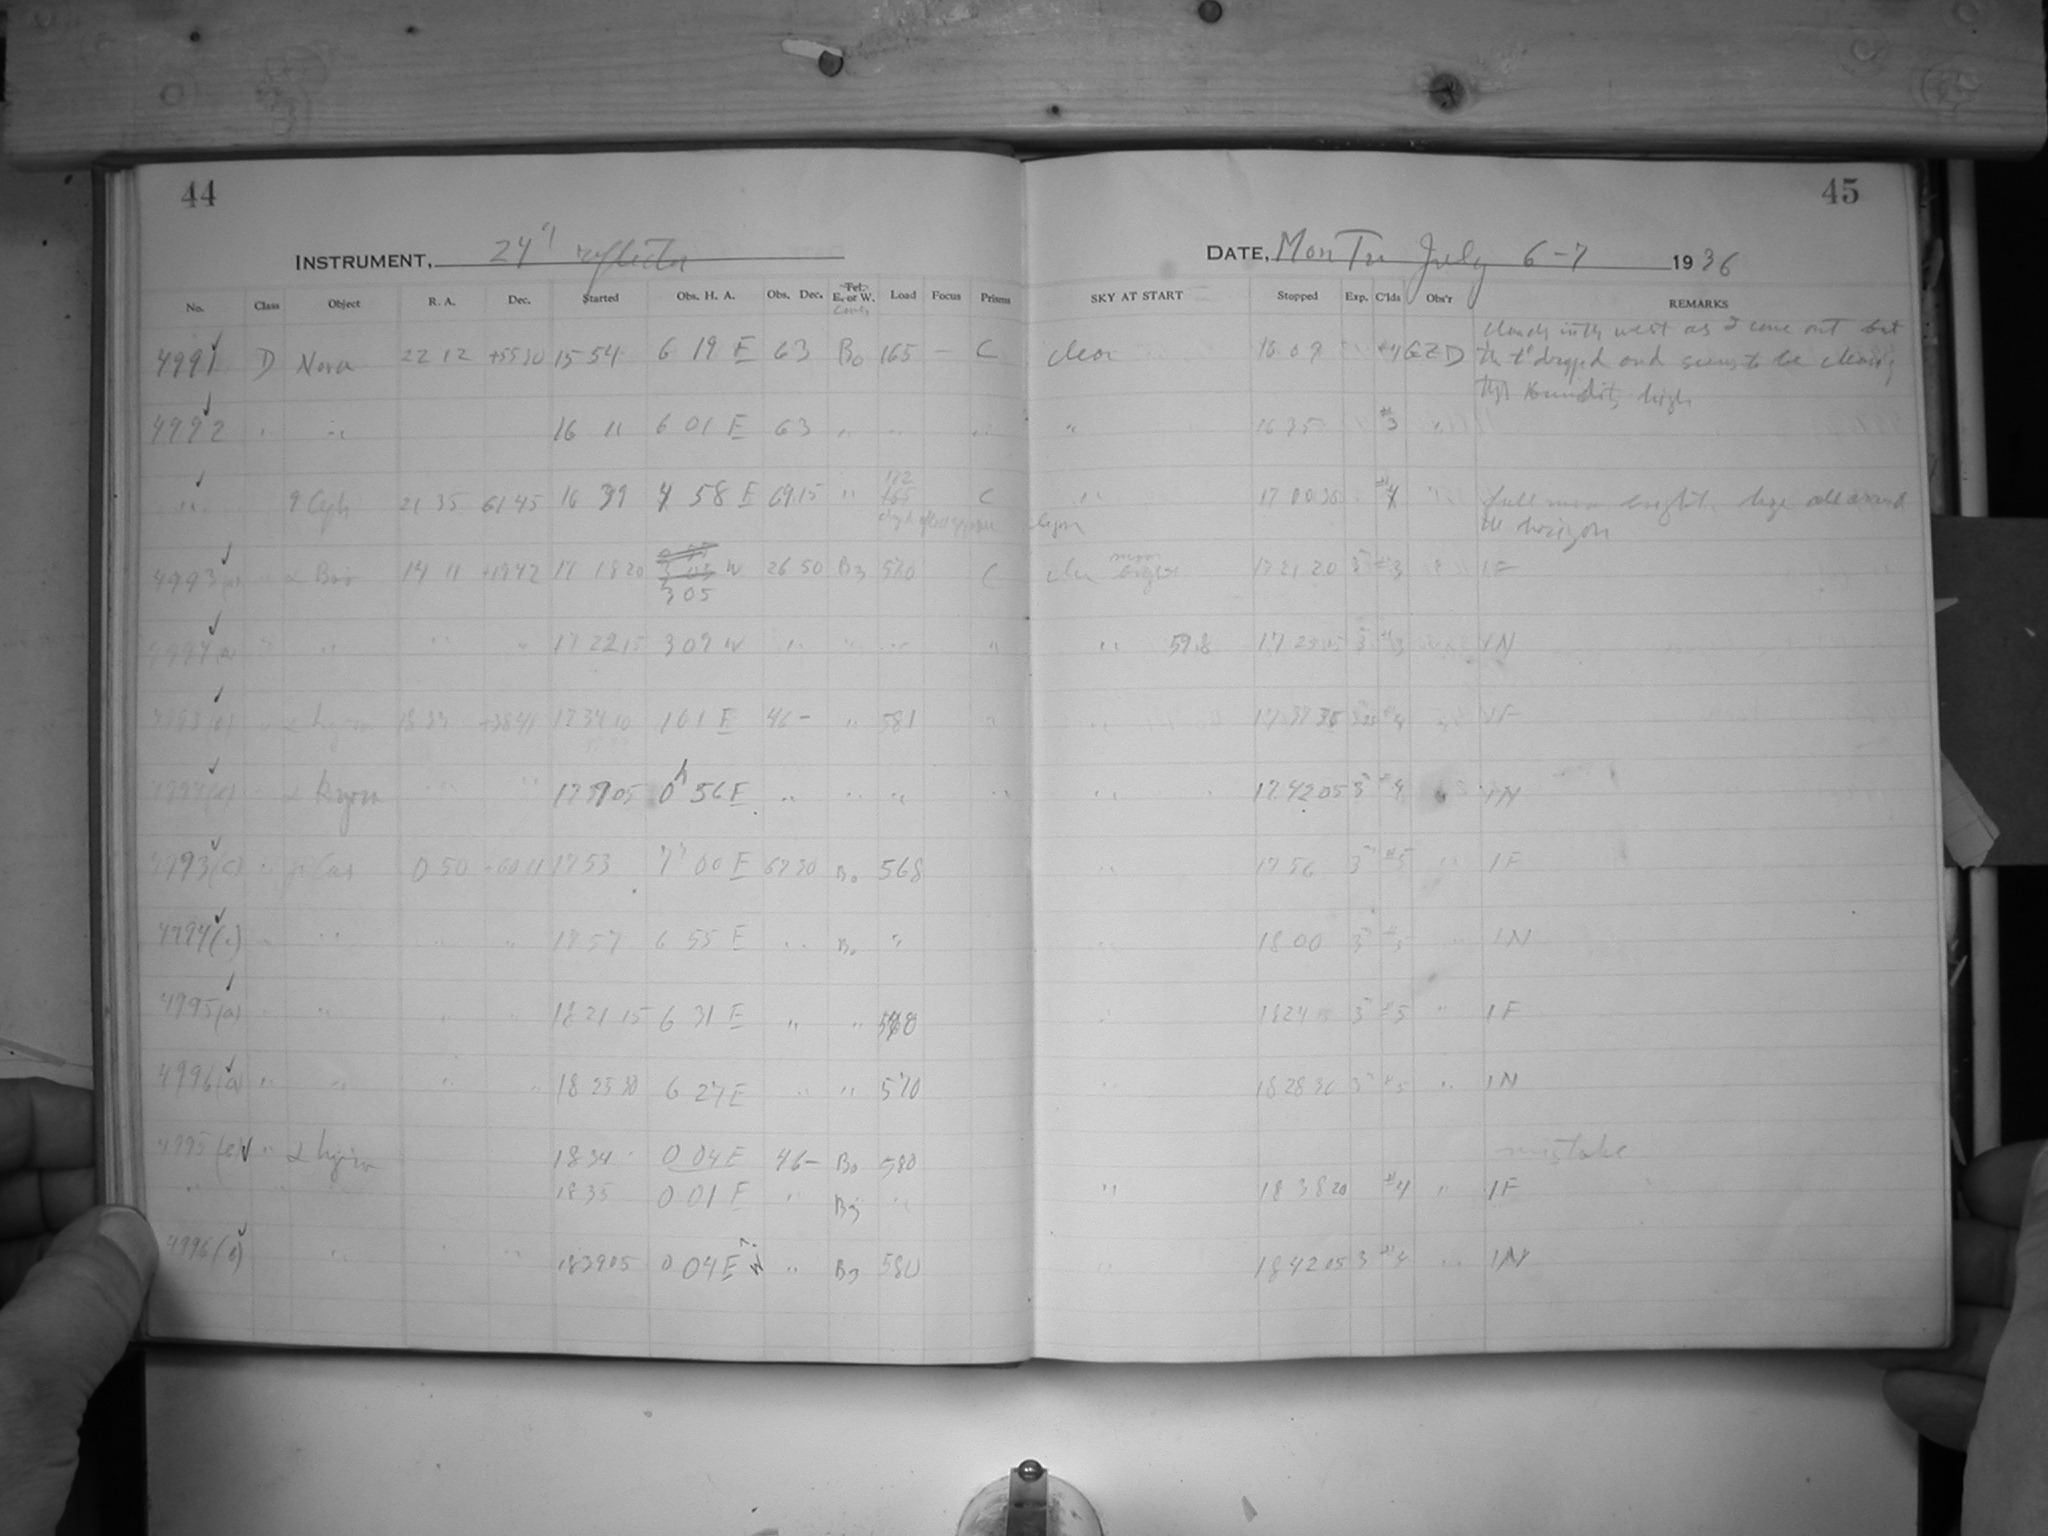 44
INSTRUMENT, 24" reflector
No. Class Object R. A. Dec. Started Obs. H. A. Obs. Dec. Tel. E. or W. Load Focus Prisms
4991 D Nova 22 12 +55 30 15 54 6 19 E 63 Bo 165 – C
4992 " " 16 11 6 01 E 63 " " "
" 9 Ceph 21 35 61 45 16 39 4 58 E 69 15 " 165 C
4993(a) " α Boo 14 11 +19 42 17 18 20 3 05 W 26 50 B3 570 C
4994(a) " " " " 17 22 15 3 09 W " " " "
4993(b) " α Lyra 18 34 +38 41 17 34 10 1 01 E 46 – " 581 "
4994(b) " α Lyra " " 17 39 05 0h 56 E " " " "
4993(c) " γ Cas 0 50 +60 11 17 53 7 00 E 67 30 Bo 568
4994(c) " " " " 17 57 6 55 E " Bo "
4995(a) " " " " 18 21 15 6 31 E " " 568
4996(a) " " " " 18 25 30 6 27 E " " 570
4995(b) " α Lyra 18 34 0 04 E 46 – Bo 580
" " " 18 35 0 01 E " B3 "
4996(b) " " " 18 39 05 0 04 E W? " B3 580
45
DATE, Mon Tu July 6-7 1936
SKY AT START Stopped Exp. C'lds Obs'r REMARKS
clouds in the west as I came out but
clear 16 09 #4 GZD the t° dropped and seems to be clearing
humidity high
" 16 35 #3 "
" 17 00 30 #4 " full moon bright haze all around
the horizon
clear moon bright 17 21 20 3 #3 " 1F
" 59.8 17 25 15 3 #3 " 1N
" 17 37 35 #4 " 1F
" 17 42 05 3 #4 " 1N
" 17 56 3 #5 " 1F
" 18 00 3 #5 " 1N
" 18 24 15 3 #5 " 1F
" 18 28 30 3 #5 " 1N
mistake
" 18 38 20 #4 " 1F
" 18 42 05 3 #4 " 1N